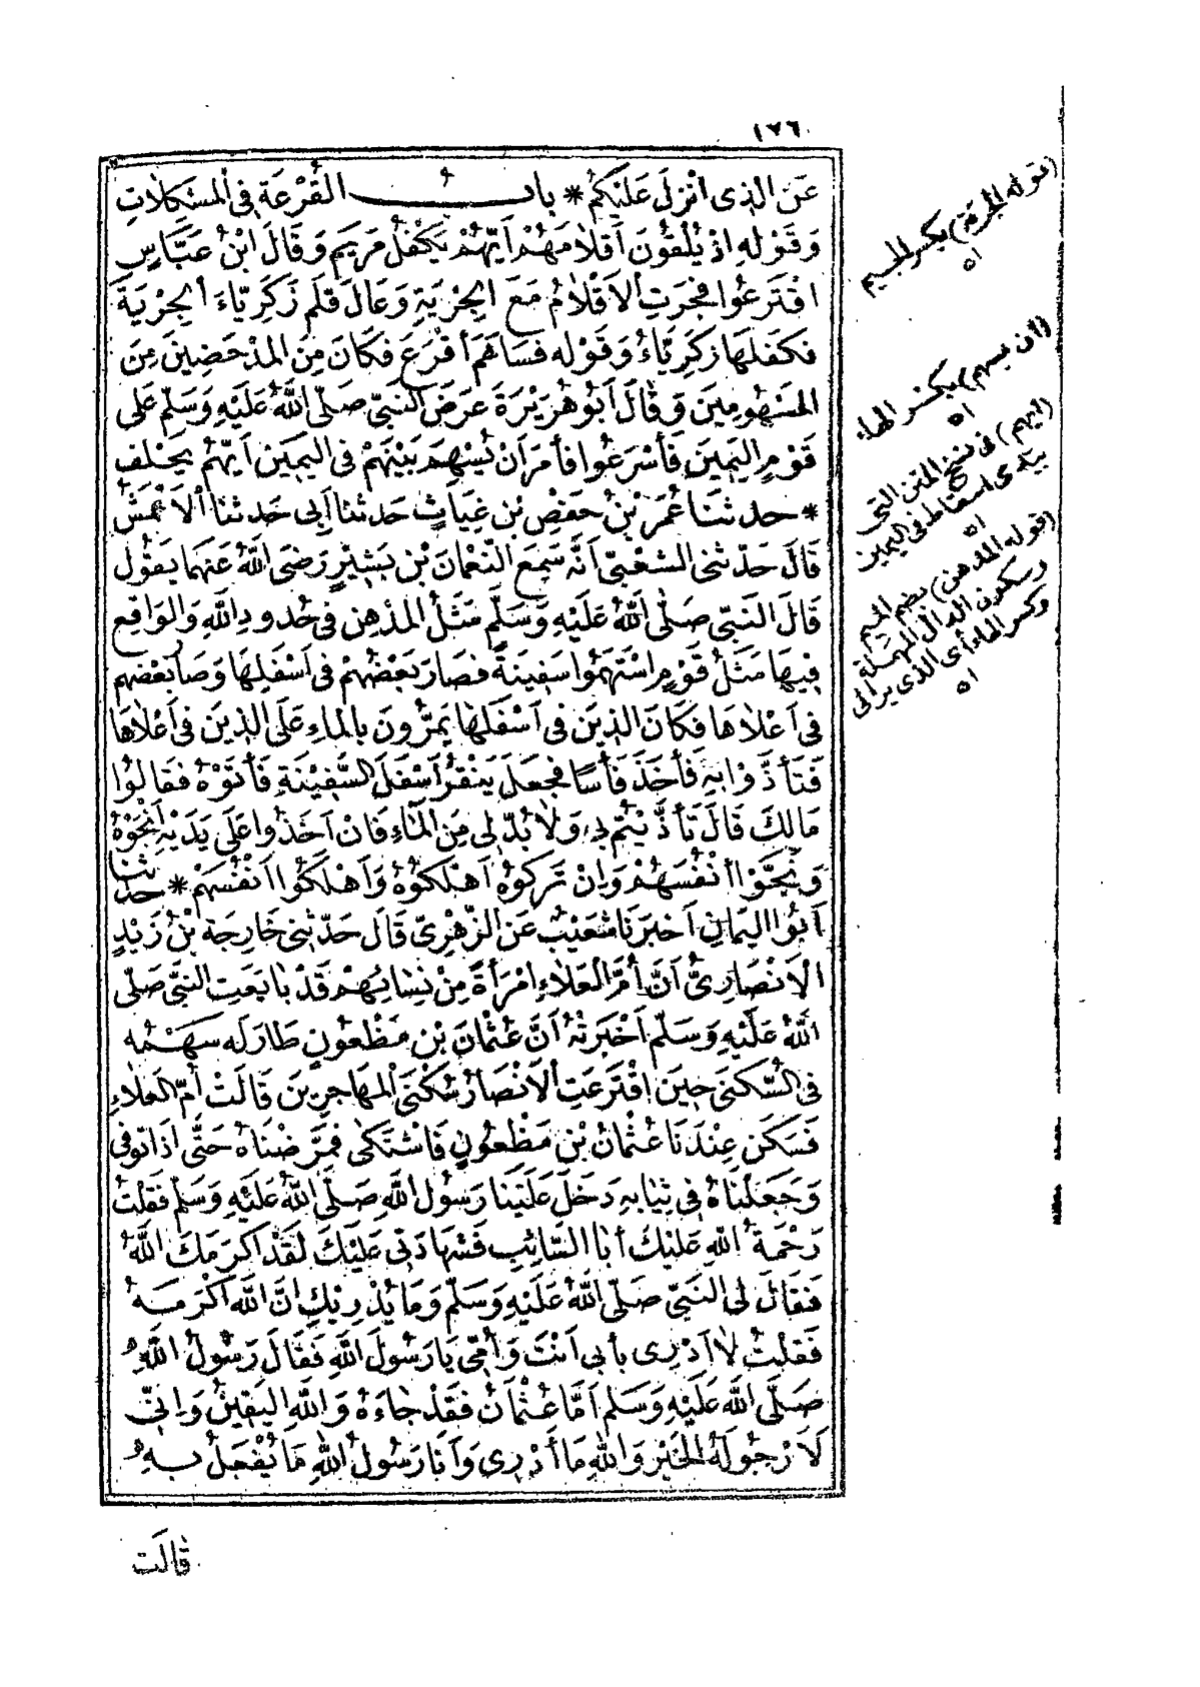 ١٧٦
عَنِ الذِى اُنْزِلَ عَلَيْكُمْ * بابُ القُرْعَةِ فِى المشكِلَاتِ
وَقَوْلِهِ اِذْ يُلْقُونَ اَقْلَامَهُمْ اَيُّهُمْ يَكْفُلُ مَرْيَمَ وَقَالَ ابْنُ عَبَّاسٍ
اقْتَرَعُوا فَجَرَتِ الاَقْلَامُ مَعَ الجِرْيَةِ وَعَالَ قَلَمُ زَكَرِيَّاءَ الجِرْيَةَ
فَكَفَلَهَا زَكَرِيَّاءُ وَقَوْلِهِ فَسَاهَمَ أَقْرَعَ فَكَانَ مِنَ المدْحَضِينَ مِنَ
المَسْهُومِينَ وَقَالَ اَبُو هُرَيْرَةَ عَرَضَ النَّبِىُّ صَلَّى اللهُ عَلَيْهِ وَسَلَّمَ عَلَى
قَوْمٍ اليَمِينَ فَأَسْرَعُوا فأمَرَ اَنْ يُسْهِمَ بَيْنَهُمْ فِى اليَمِينِ اَيُّهُمْ يَحْلِفُ
* حدثنَا عُمَرُ بْنُ حَفْصِ بْنِ غِيَاثٍ حَدثنا اَبِى حَدثنا الاَعْمَشُ
قَالَ حَدّثنى الشعْبىُّ اَنَّهُ سَمِعَ النُّعْمَانَ بْنَ بَشِيْرٍ رَضِىَ اللهُ عَنْهما يَقُولُ
قَالَ النَّبىُّ صَلَّى اللهُ عَلَيْهِ وَسَلَّمَ مَثَلُ المُدْهِنِ فِى حُدُودِ اللهِ وَالوَاقِعِ
فِيهَا مَثَلُ قَوْمٍ اسْتَهَمُوا سَفِينَةً فصَارَ بَعْضُهُمْ فِى اَسْفَلِهَا وَصَارَ بَعْضُهُمْ
فِى اَعْلَاهَا فَكَانَ الذِينَ فِى اَسْفَلِهَا يَمُرُّونَ بِالمَاءِ عَلَى الذِينَ فِى اَعْلَاهَا
فَتَأَذَّوْا بِهِ فَأَخَذَ فَأْسًا فَجَعَلَ يَنْقُرُ اَسْفَلَ السَّفِيْنَةِ فَأَتَوْهُ فَقَالُوا
مَالَكَ قَالَ تَأَذَّيْتُمْ بِى وَلَا بُدَّ لِى مِنَ الماءِ فَانْ اَخَذُوا عَلَى يَدَيْهِ اَنْجَوْهُ
وَنَجَّوْا اَنْفُسَهُمْ وَاِنْ تَرَكُوهُ اَهْلَكُوهُ وَاَهْلَكُوا اَنْفُسَهُمْ * حدثنا
اَبُو اليَمَانِ اَخْبَرَنَا شُعَيْبٌ عَنِ الزُّهْرِىِّ قَالَ حَدّثنِى خَارِجَةُ بْنُ زَيْدٍ
الاَنْصَارِىُّ اَنَّ أُمَّ العَلَاءِ امْرَأَةً مِنْ نِسَائِهِمْ قَدْ بَايَعَتِ النَّبِىَّ صَلَّى
اللهُ عَلَيْهِ وَسَلَّمَ اَخْبَرَتْهُ اَنَّ عُثْمَانَ بْنَ مَظْعُونٍ طَارَ لَهُ سَهْمُهُ
فِى السُّكْنَى حِينَ اقْتَرَعَتِ الاَنْصَارُ سُكْنَى المهَاجِرِينَ قَالَتْ أُمُّ العَلَاءِ
فَسَكَنَ عِنْدَنَا عُثْمَانُ بْنُ مَظْعُونٍ فَاشْتَكَى فَمَرَّضْنَاهُ حَتَّى اذَا تُوفى
وَجَعَلْنَاهُ فِى ثِيَابِهِ دَخَلَ عَلَيْنَا رَسُولُ اللهِ صَلَّى اللهُ عَلَيْهِ وَسَلَّمَ فَقُلْتُ
رَحْمَةُ اللهِ عَلَيْكَ أَبَا السَّائِبِ فَشَهَادَتِى عَلَيْكَ لَقَدْ اَكرَمَكَ اللهُ
فَقَالَ لِى النَّبِىُّ صَلَّى اللهُ عَلَيْهِ وَسَلَّمَ وَمَا يُدْرِيْكِ اَنَّ اللهَ اَكْرَمَهُ
فَقُلْتُ لَا اَدْرِى بأبى اَنْتَ وَاُمِّى يَا رَسُولَ اللهِ فَقَالَ رَسُولُ اللهِ
صَلَّى اللهُ عَلَيْهِ وَسَلَّمَ اَمَّا عُثْمَانُ فَقَدْ جَاءَهُ وَاللهِ اليَقِينُ وَاِنِّى
لَاَرْجُو لَهُ الخَيْرَ وَاللهِ مَا أَدْرِى وَاَنَا رَسُولُ اللهِ مَا يُفْعَلُ بِهِ
قالَت
(قوله الجرية) بكسر الجيم
اه
(أن يسهم) بكسر الهاء
اه
(ايهم) فى نسخ المتن التى
بيدى اسقاط فى اليمين
اه
(قوله المدهن) بضم الميم
وسكون الدال المهملة
وكسر الهاء أى الذى يرائى
اه